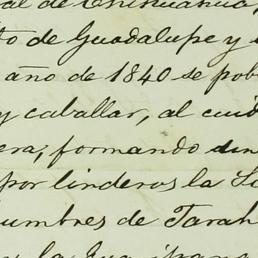 al de Chihuahua,
to de Guadalupe y
año de 1840 se pob
y caballar, al cuid
era; formando un
por linderos la
umbres de Tarah